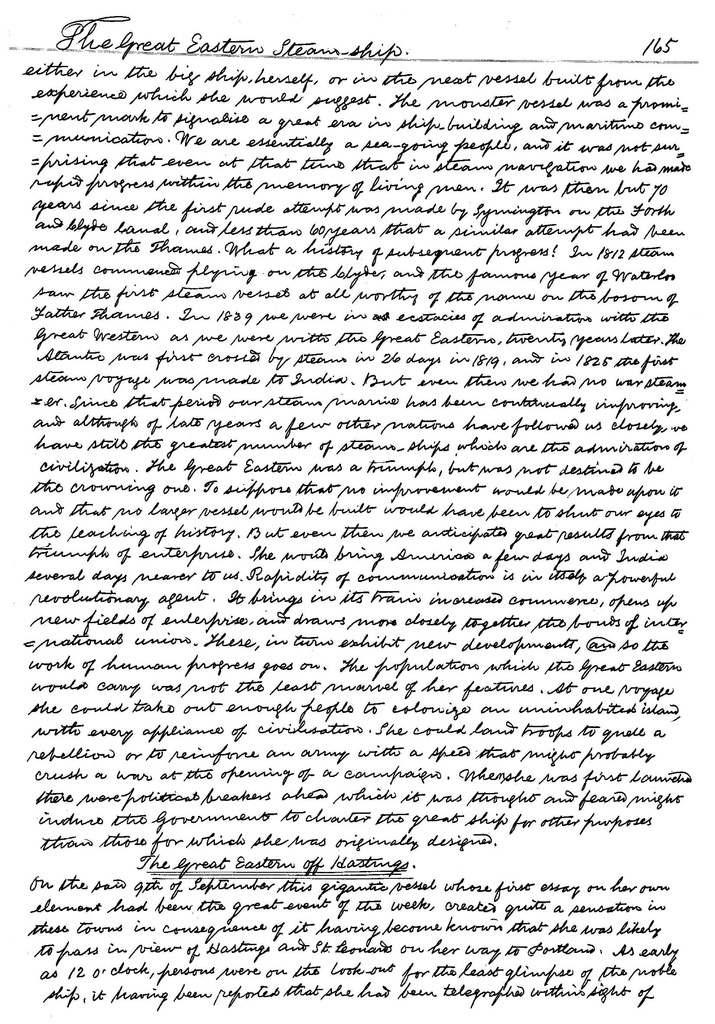 The Great Eastern Steam-ship. 165
either in the big ship, herself, or in the next vessel built from the
experience which she would suggest. The monster vessel was a promi=
=nent mark to signalise a great era in ship-building and maritime com=
=munication. We are essentially a sea-going people, and it was not sur=
=prising that even at that time that in steam navigation we had made
rapid progress within the memory of living men. It was then but 70
years since the first rude attempt was made by Symington on the Forth
and Clyde Canal, and less than 60 years that a similar attempt had been
made on the Thames. What a history of subsequent progress! In 1812 steam
vessels commenced plying on the Clyde, and the famous year of Waterloo
saw the first steam vessel at all worthy of the name on the bosom of
Father Thames. In 1839 we were in as ecstacies of admiration with the
Great Western as we were with the Great Eastern, twenty years later. The
Atlantic was first crossed by steam in 26 days in 1819, and in 1825 the first
steam voyage was made to India. But even then we had no war steam=
=er. Since that period our steam marine has been continually improving,
and although of late years a few other nations have followed us closely, we
have still the greatest number of steam-ships which are the admiration of
civilization. The Great Eastern was a triumph, but was not destined to be
the crowning one. To suppose that no improvement would be made upon it
and that no larger vessel would be built would have been to shut our eyes to
the teaching of history. But even then we anticipated great results from that
triumph of enterprise. She would bring America a few days and India
several days nearer to us. Rapidity of communication is in itself a powerful
revolutionary agent. It brings in its train increased commerce, opens up
new fields of enterprise, and draws more closely together the bonds of inter=
=national union. These, in turn exhibit new developments, and so the
work of human progress goes on. The population which the Great Eastern
would carry was not the least marvel of her features. At one voyage
she could take out enough people to colonize an uninhabited island,
with every appliance of civilisation. She could land troops to quell a
rebellion or to reinforce an army with a speed that might probably
crush a war at the opening of a campaign. When she was first launched
there were political breakers ahead which it was thought and feared might
induce the Government to charter the great ship for other purposes
than those for which she was originally designed.
The Great Eastern off Hastings.
On the said 9th of September this gigantic vessel whose first essay on her own
element had been the great event of the week, created quite a sensation in
these towns in consequence of it having become known that she was likely
to pass in view of Hastings and St. Leonards on her way to Portland. As early
as 12 o'clock, persons were on the look-out for the least glimpse of the noble
ship, it having been reported that she had been telegraphed within sight of